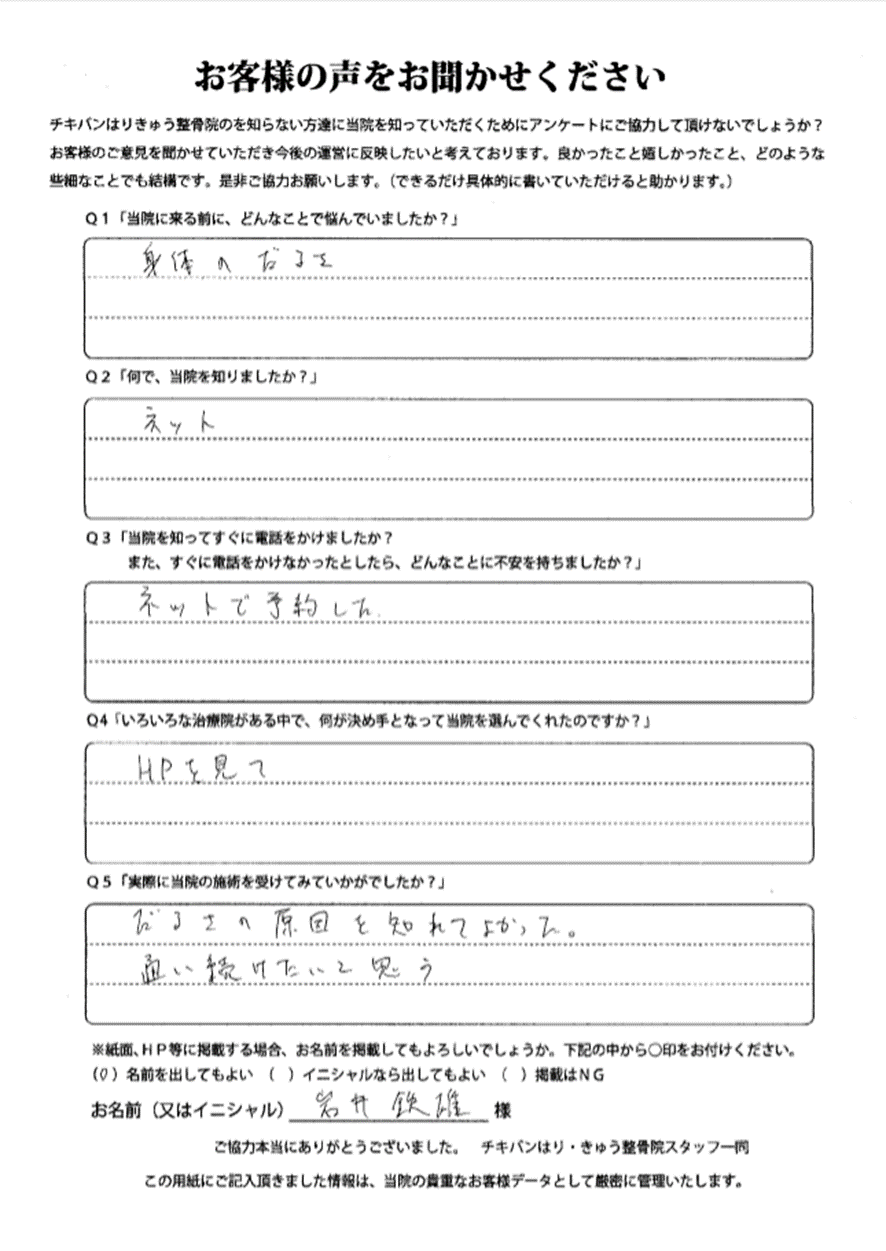 お客様の声をお聞かせください
チキバンはりきゅう整骨院のを知らない方達に当院を知っていただくためにアンケートにご協力して頂けないでしょうか？
お客様のご意見を聞かせていただき今後の運営に反映したいと考えております。良かったこと嬉しかったこと、どのような
些細なことでも結構です。是非ご協力お願いします。（できるだけ具体的に書いていただけると助かります。）
Ｑ１「当院に来る前に、どんなことで悩んでいましたか？」
身体のだるさ
Ｑ２「何で、当院を知りましたか？」
ネット
Ｑ３「当院を知ってすぐに電話をかけましたか？
また、すぐに電話をかけなかったとしたら、どんなことに不安を持ちましたか？」
ネットで予約した.
Q4「いろいろな治療院がある中で、何が決め手となって当院を選んでくれたのですか？」
HPを見て
Ｑ５「実際に当院の施術を受けてみていかがでしたか？」
だるさの原因を知れてよかった。
通い続けたいと思う
※紙面、ＨＰ等に掲載する場合、お名前を掲載してもよろしいでしょうか。下記の中から〇印をお付けください。
（○）名前を出してもよい （ ）イニシャルなら出してもよい （ ）掲載はＮＧ
お名前（又はイニシャル） 岩井 鉄雄 様
ご協力本当にありがとうございました。 チキバンはり・きゅう整骨院スタッフ一同
この用紙にご記入頂きました情報は、当院の貴重なお客様データとして厳密に管理いたします。